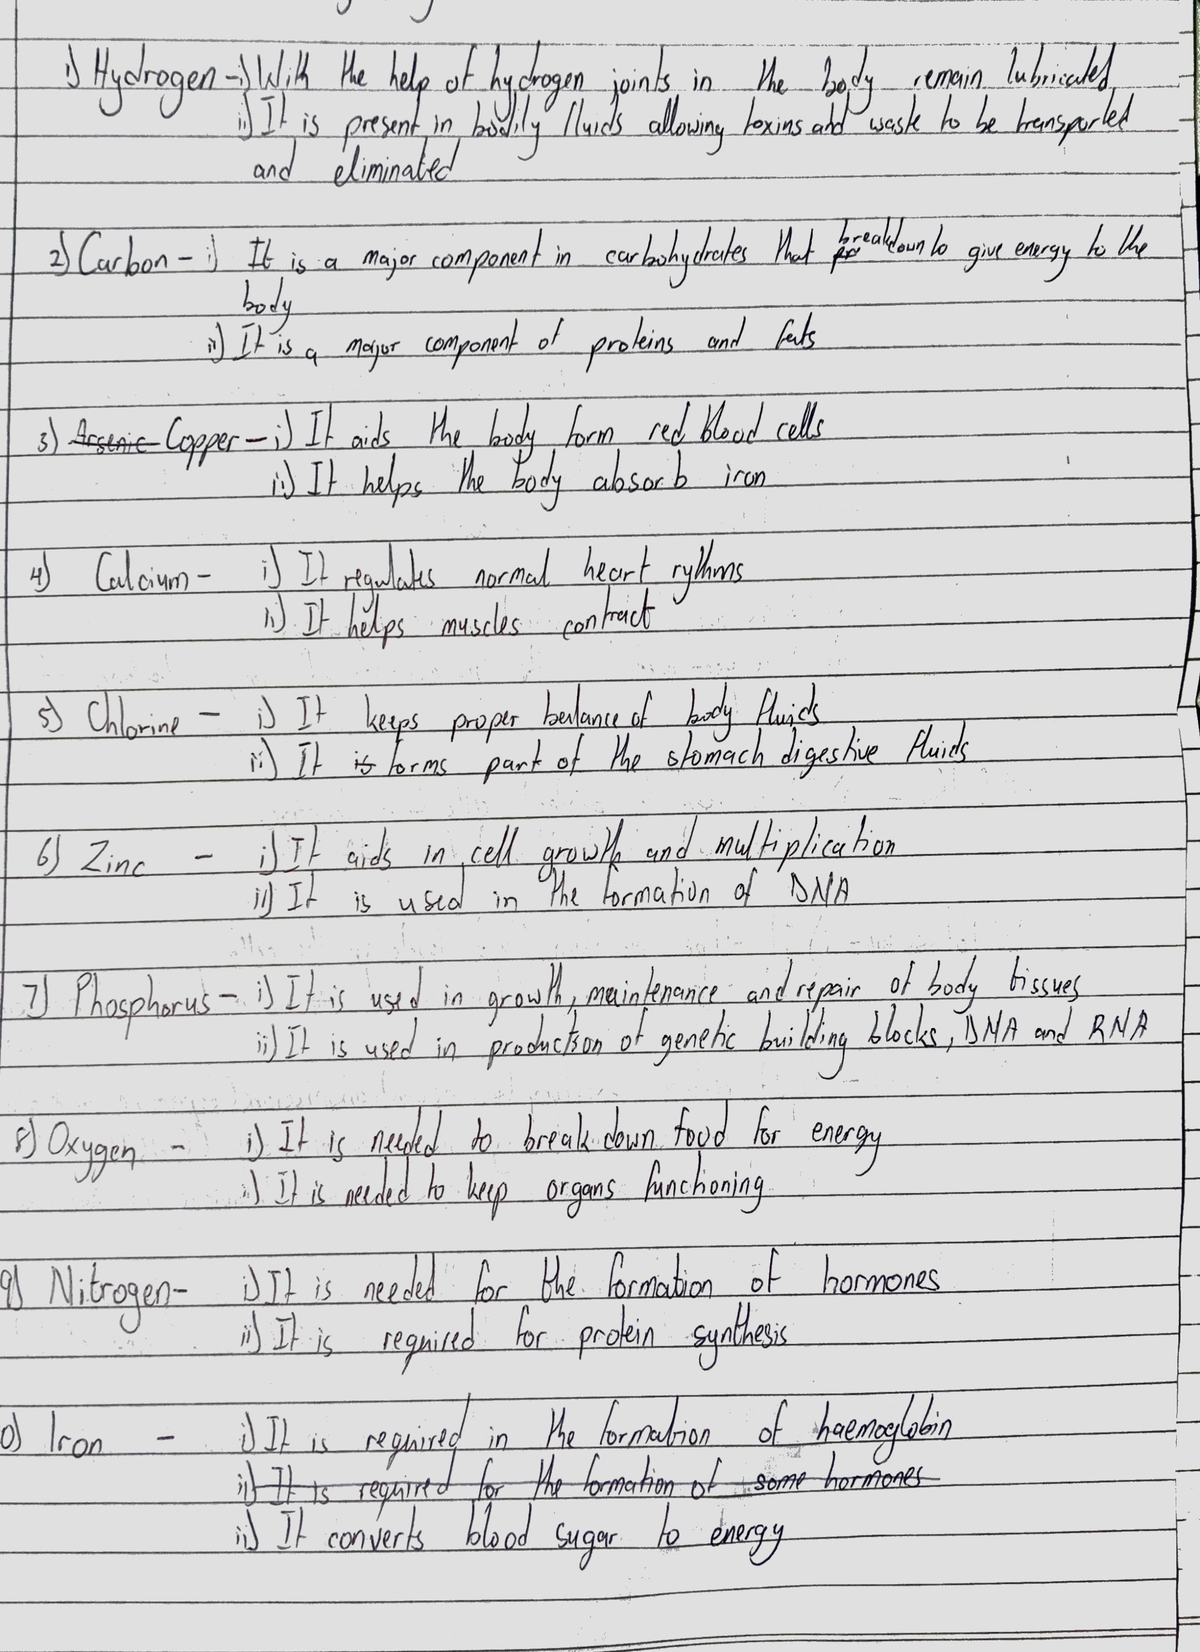 1) Hydrogen - i) With the help of hydrogen joints in the body remain lubricated
ii) It is present in bodily fluids allowing toxins and waste to be transported
and eliminated
2) Carbon - i) It is a major component in carbohydrates that breakdown to give energy to the
body
ii) It is a major component of proteins and fats
3) Arsenic Copper - i) It aids the body form red blood cells
ii) It helps the body absorb iron
4) Calcium - i) It regulates normal heart rythms
ii) It helps muscles contract
5) Chlorine - i) It keeps proper balance of body fluids
ii) It is forms part of the stomach digestive fluids
6) Zinc - i) It aids in cell growth and multiplication
ii) It is used in the formation of DNA
7) Phosphorus - i) It is used in growth, maintenance and repair of body tissues
ii) It is used in production of genetic building blocks, DNA and RNA
8) Oxygen - i) It is needed to break down food for energy
ii) It is needed to keep organs functioning
9) Nitrogen - i) It is needed for the formation of hormones
ii) It is required for protein synthesis
0) Iron - i) It is required in the formation of haemoglobin
ii) It is required for the formation of some hormones
ii) It converts blood sugar to energy